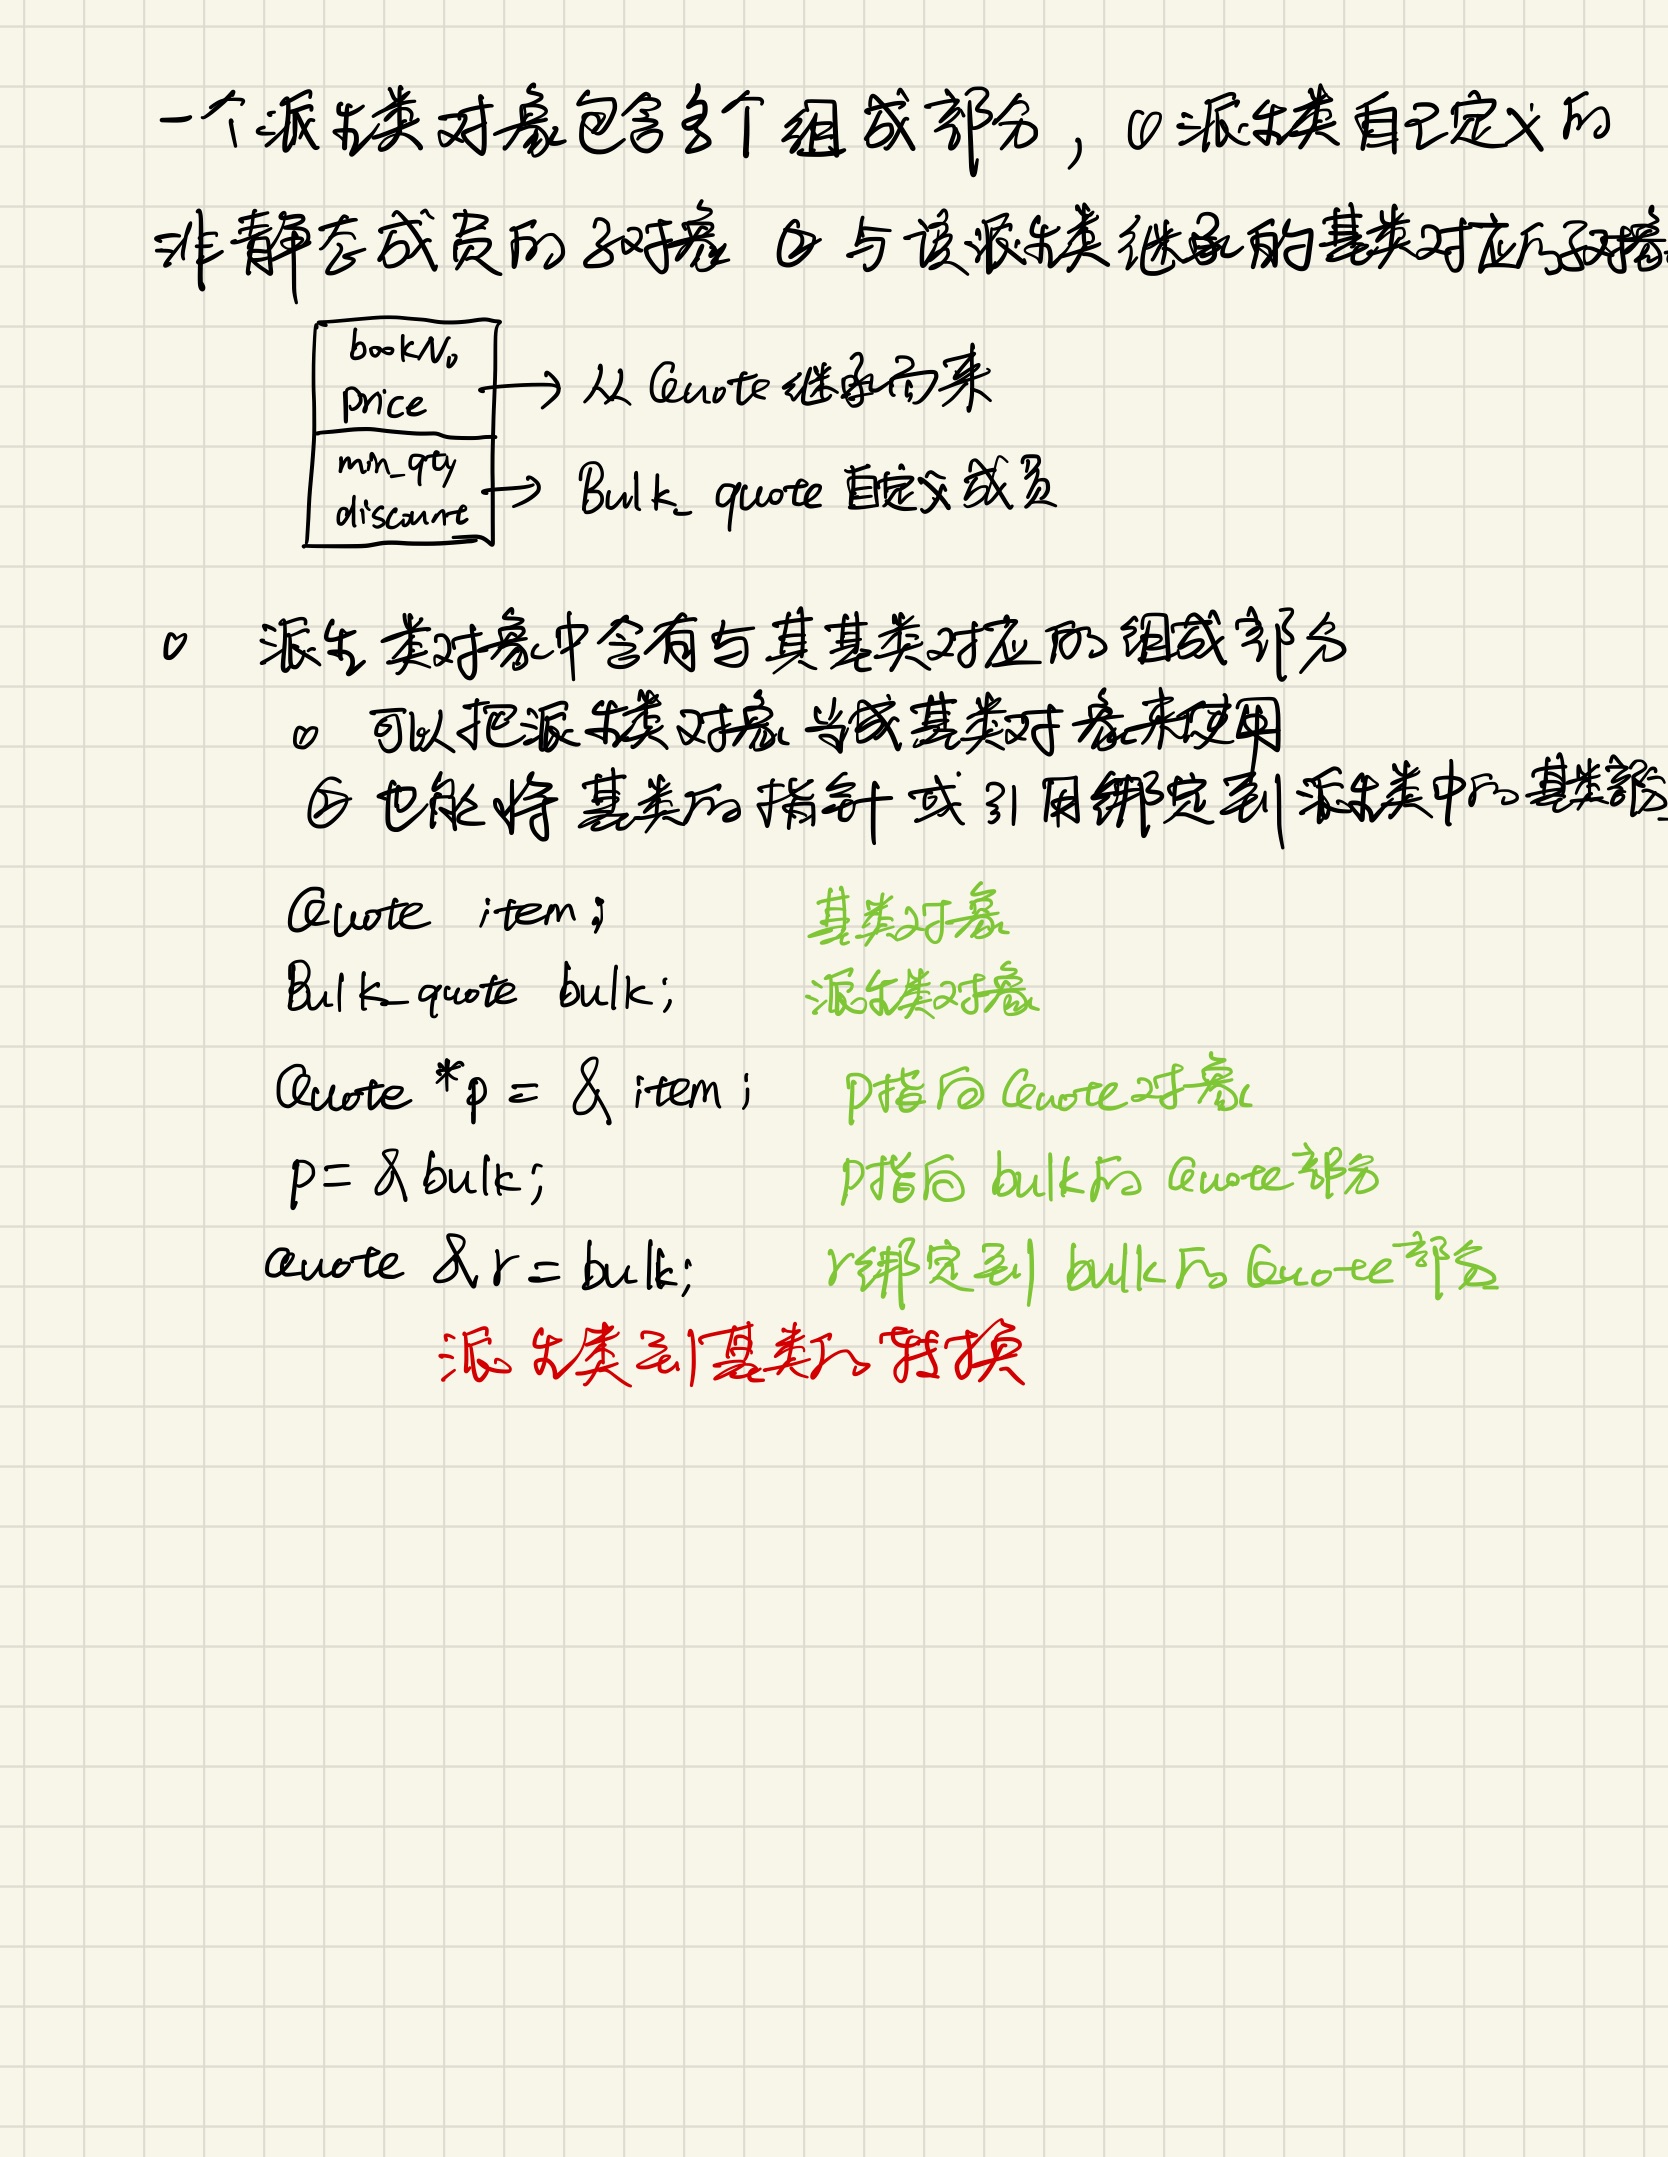 一个派生类对象包含多个组成部分，① 派生类自己定义的
非静态成员的子对象 ② 与该派生类继承的基类对应的子对象
bookNo
price → 从 Quote 继承而来
min_qty
discount → Bulk_quote 自定义成员
。 派生类对象中含有与其基类对应的组成部分
。 可以把派生类对象当成基类对象来使用
② 也能将基类的指针或引用绑定到派生类中的基类部分
Quote item; 基类对象
Bulk_quote bulk; 派生类对象
Quote *p = & item; p指向 Quote对象
p = & bulk; p指向 bulk的 Quote部分
Quote &r = bulk; r绑定到 bulk的 Quote部分
派生类到基类的转换